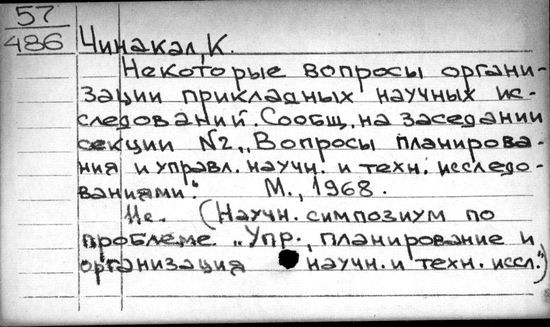 57
486
Чинакал, К.
Некоторые вопросы органи-
зации прикладных научных ис-
следований. Сообщ. на заседании
секции №2 „Вопросы планирова-
ния и управл. научн. и техн. исследо-
ваниями". М., 1968.
(Научн. симпозиум по
проблеме „Упр., планирование и
организация научн. и техн. иссл.")